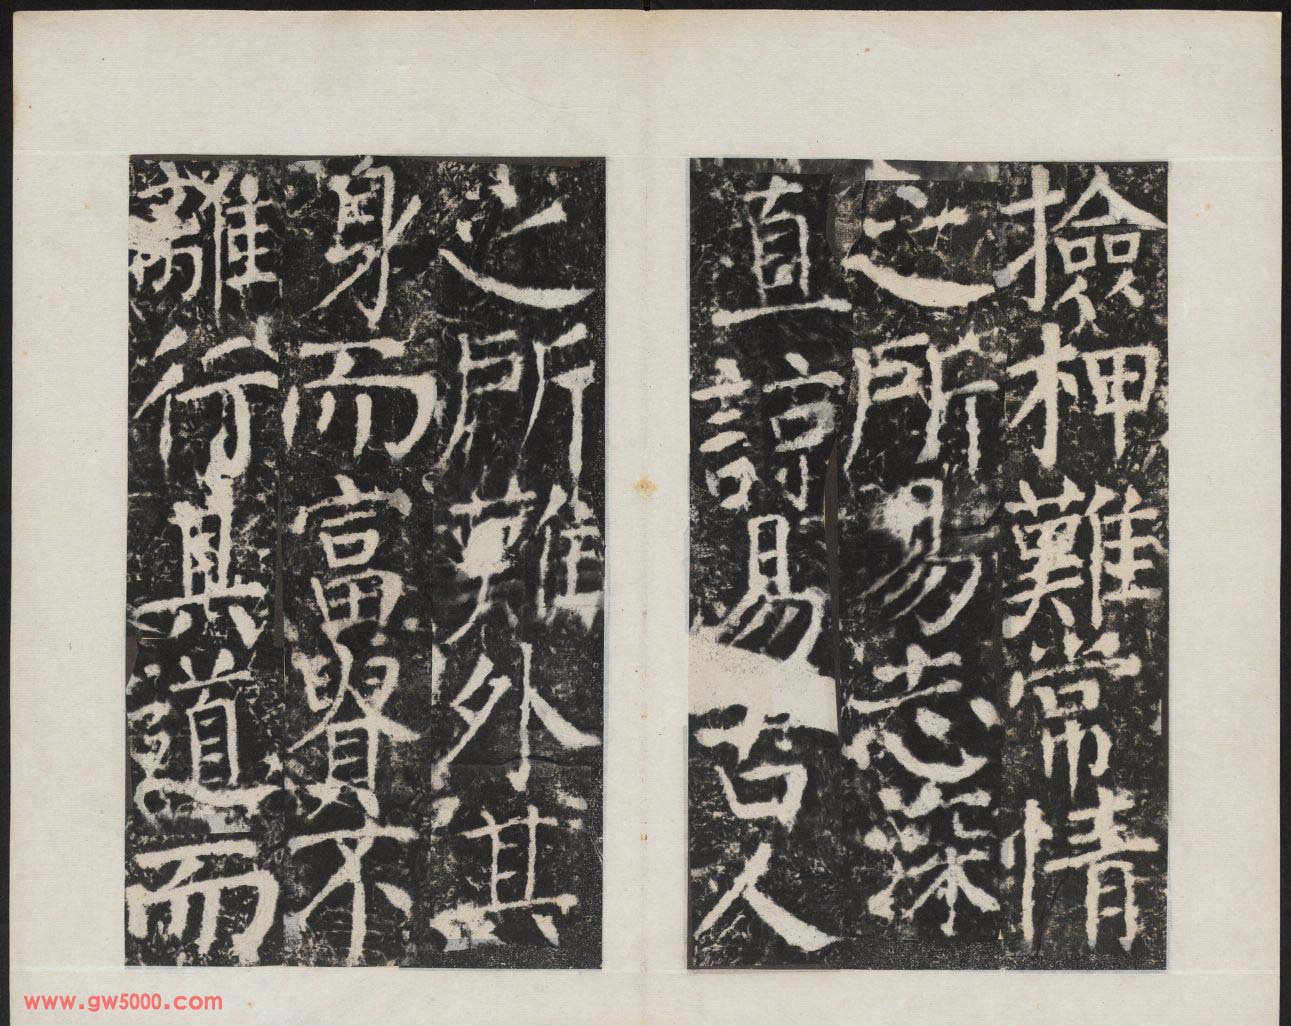 撿柙難常情
之所易志深
直諒易古人
之所難外其
身而富賢不
離行其道而
www.gw5000.com